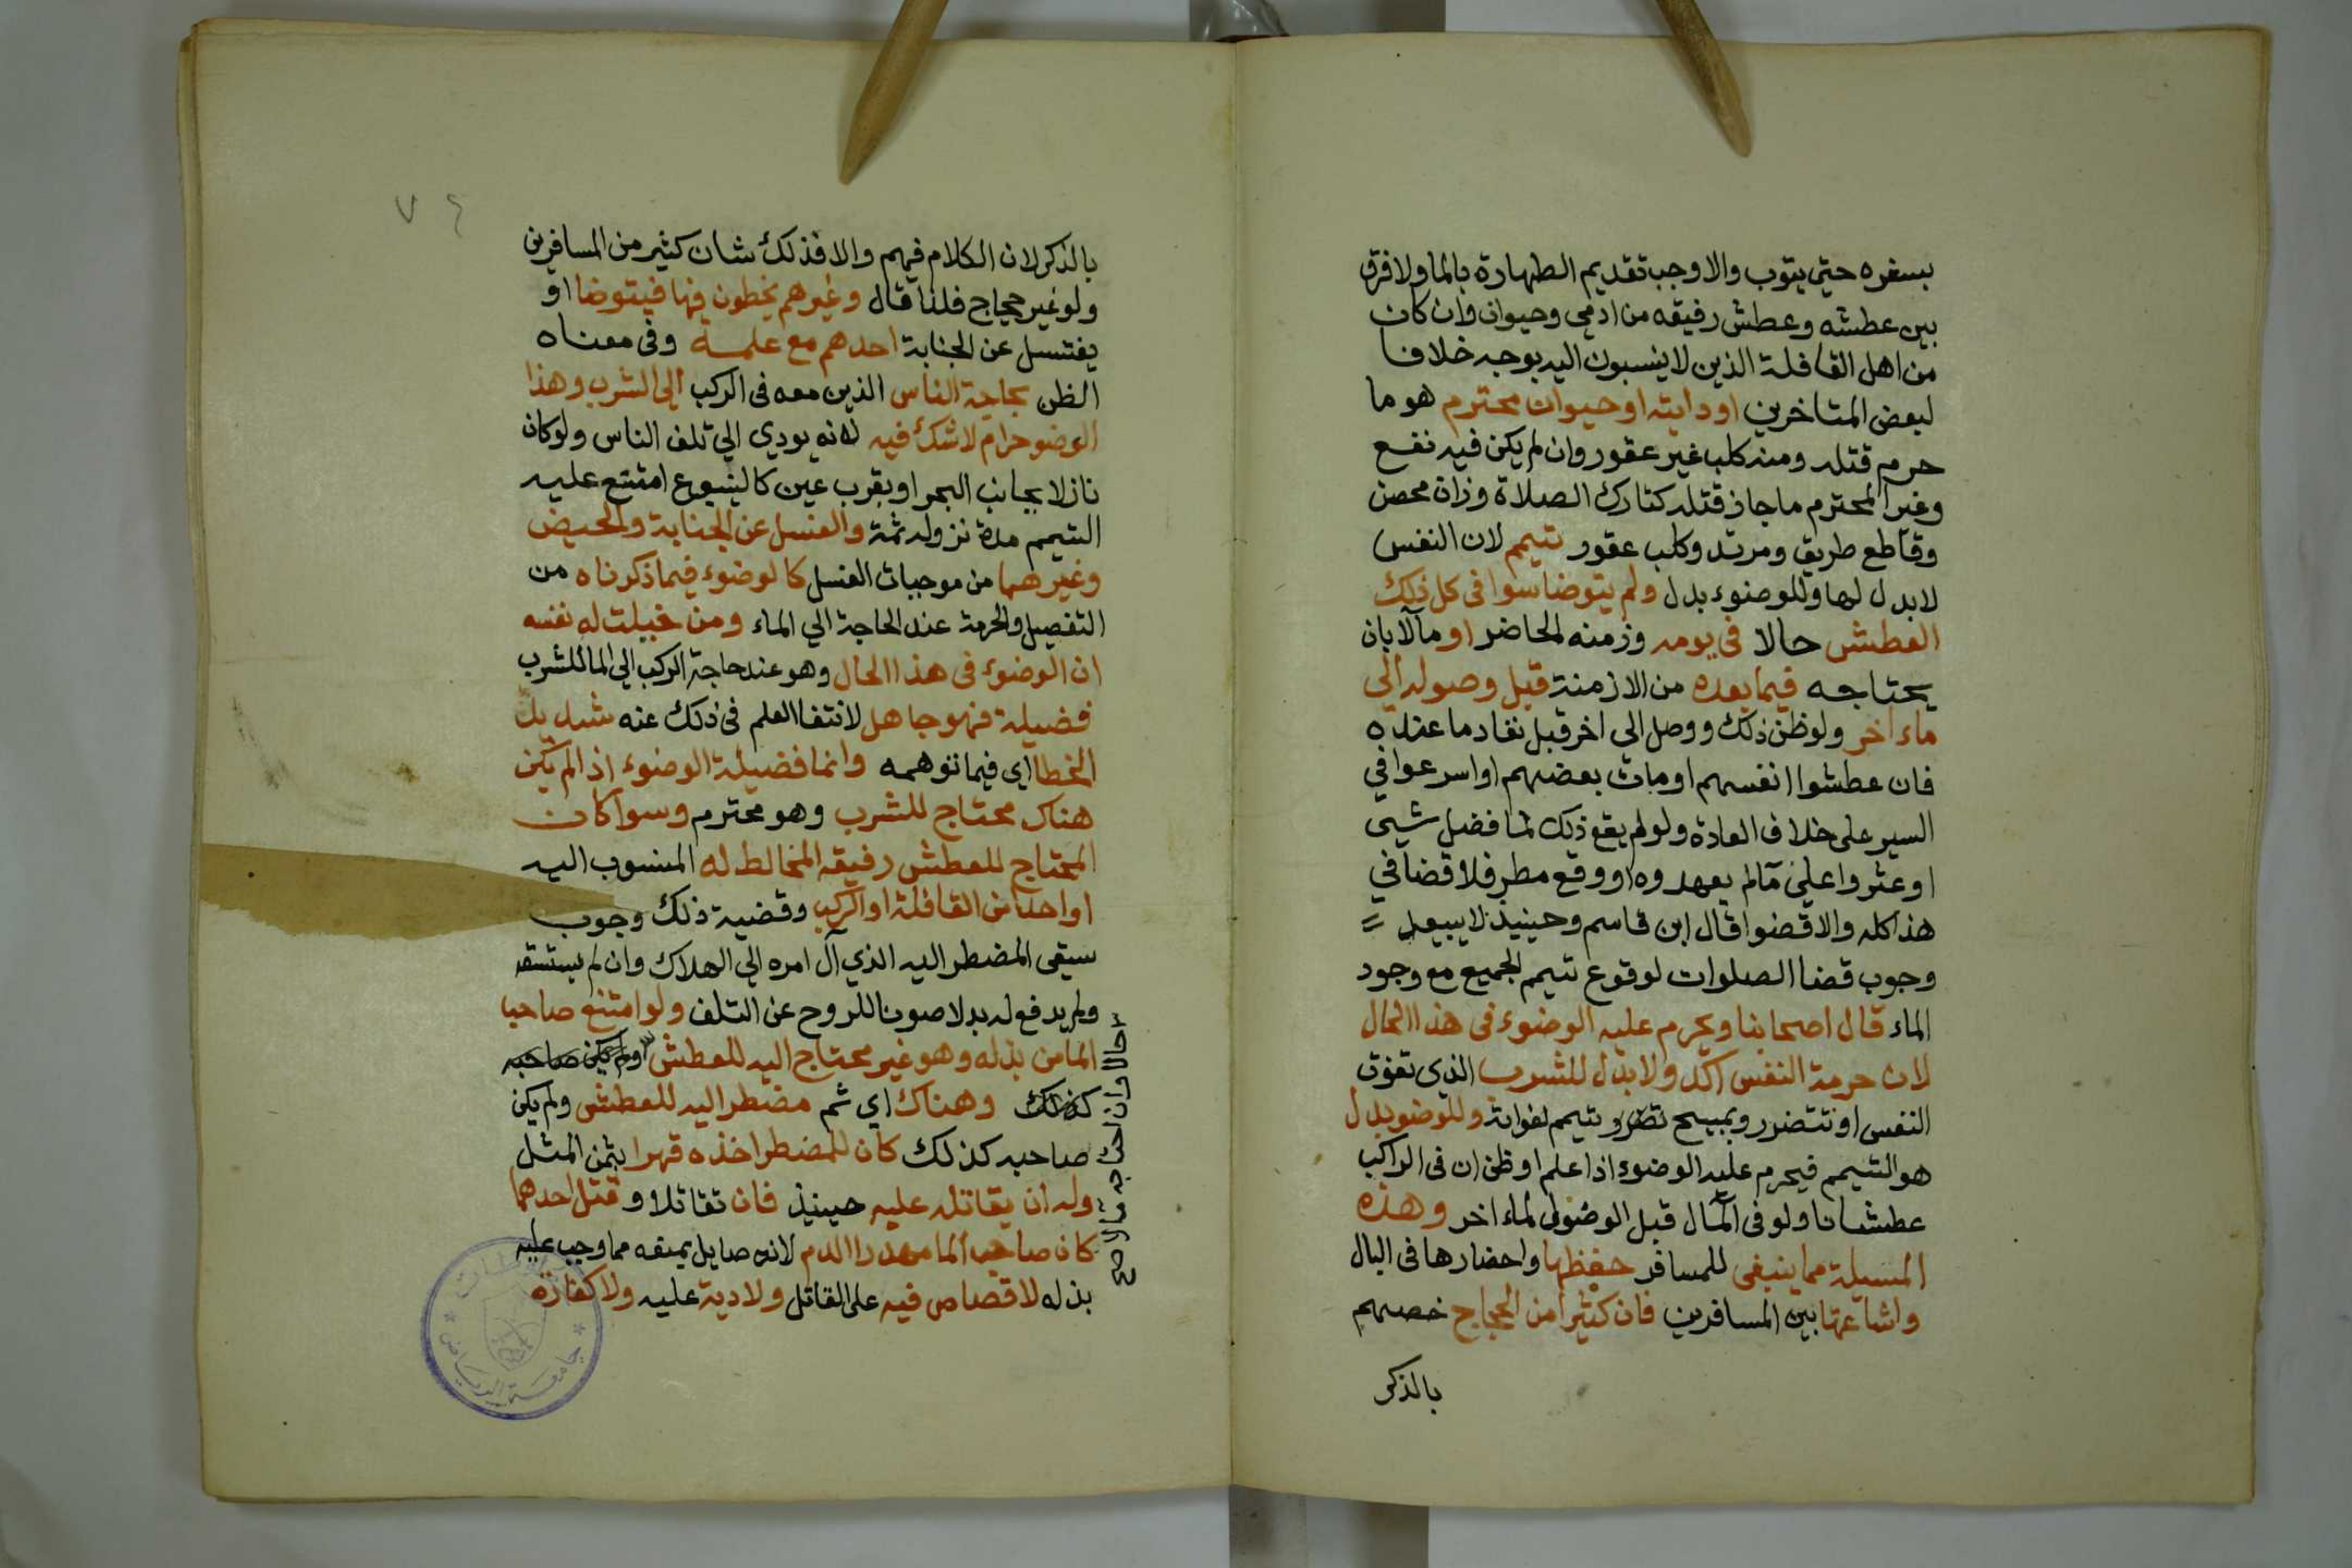 بسفره حتى يتوب والاوجب تقديم الطهارة بالما ولا فرق
بين عطشه وعطش رفيقه من ادمي وحيوان وان كان
من اهل القافلة الذين لا ينسبون اليه بوجه خلافا
لبعض المتاخرين او دابته او حيوان محترم هو ما
حرم قتله ومنه كلب غير عقور وان لم يكن فيه نفع
وغير المحترم ما جاز قتله كتارك الصلاة وزان محصن
وقاطع طريق ومرتد وكلب عقور تيمم لان النفس
لا بدل لها وللوضوء بدل ولم يتوضا سوا في كل ذلك
العطش حالا في يومه وزمنه الحاضر او مآلا بان
يحتاجه فيما بعده من الازمنة قبل وصوله الي
ماء اخر ولو ظن ذلك ووصل الي اخر قبل نفاد ما عنده
فان عطشوا انفسهم او مات بعضهم او اسرعوا في
السير على خلاف العادة ولو لم يقع ذلك لما فضل شيى
او عثروا على مآ لم يعهدوه او وقع مطر فلا قضا في
هذا كله والا قضوا قال ابن قاسم وحينيذ لا يبعد
وجوب قضا الصلوات لوقوع تيمم الجميع مع وجود
الماء قال اصحابنا ويحرم عليه الوضوء في هذا الحال
لان حرمة النفس اكد ولا بدل للشرب الذي تفوق
النفس او تتضرر ويبيح تضرر وتيمم لفواته وللوضو بدل
هو التيمم فيحرم عليه الوضوء اذا علم او ظن ان في الراكب
عطشانا ولو في المآل قبل الوصول لماء اخر وهذه
المسيلة مما ينبغي للمسافر حفظها واحضارها في البال
واشاعتها بين المسافرين فان كثيرا من الحجاج خصهم
بالذكر
٧٤
بالذكر لان الكلام فيهم والا فذلك شان كثير من المسافرين
ولو غير حجاج فلذا قال وغيرهم يخطون فيها فيتوضا او
يغتسل عن الجنابة احدهم مع علمه وفي معناه
الظن بحاجة الناس الذين معه في الركب الي الشرب وهذا
الوضو حرام لا شك فيه لانه يودي الي تلف الناس ولو كان
نازلا بجانب البحر او بقرب عين كالينبوع امتنع عليه
التيمم مدة نزوله ثمة والغسل عن الجنابة والحيض
وغيرهما من موجبات الغسل كالوضوء فيما ذكرناه من
التفصيل والحرمة عند الحاجة الي الماء ومن خيلت له نفسه
ان الوضوء في هذا الحال وهو عند حاجة الركب الي الما للشرب
فضيلة فهو جاهل لانتفا العلم في ذلك عنه شديد
الخطا اي فيما توهمه وانما فضيلة الوضوء اذا لم يكن
هناك محتاج للشرب وهو محترم وسوا كان
المحتاج للعطش رفيقه المخالط له المنسوب اليه
او احدا من القافلة او الركب وقضية ذلك وجوب
سيقي المضطر اليه الذي آل امره الي الهلاك وان لم يستسقه
ولم يدفع له بدلا صونا للروح عن التلف ولو امتنع صاحب
الما من بذله وهو غير محتاج اليه للعطش ولم يكن صاحبه
كذلك وهناك اي ثم مضطر اليه للعطش ولم يكن
صاحبه كذلك كان للمضطر اخذه قهرا بثمن المثل
وله ان يقاتله عليه حينيذ فان تقاتلا وقتل احدهما
كان صاحب الما مهدر الدم لانه صايل بمنعه مما وجب عليه
بذله لا قصاص فيه على القاتل ولا دية عليه ولا كفارة
حالا وان احتاجه مآلا صح
جامعة الرياض